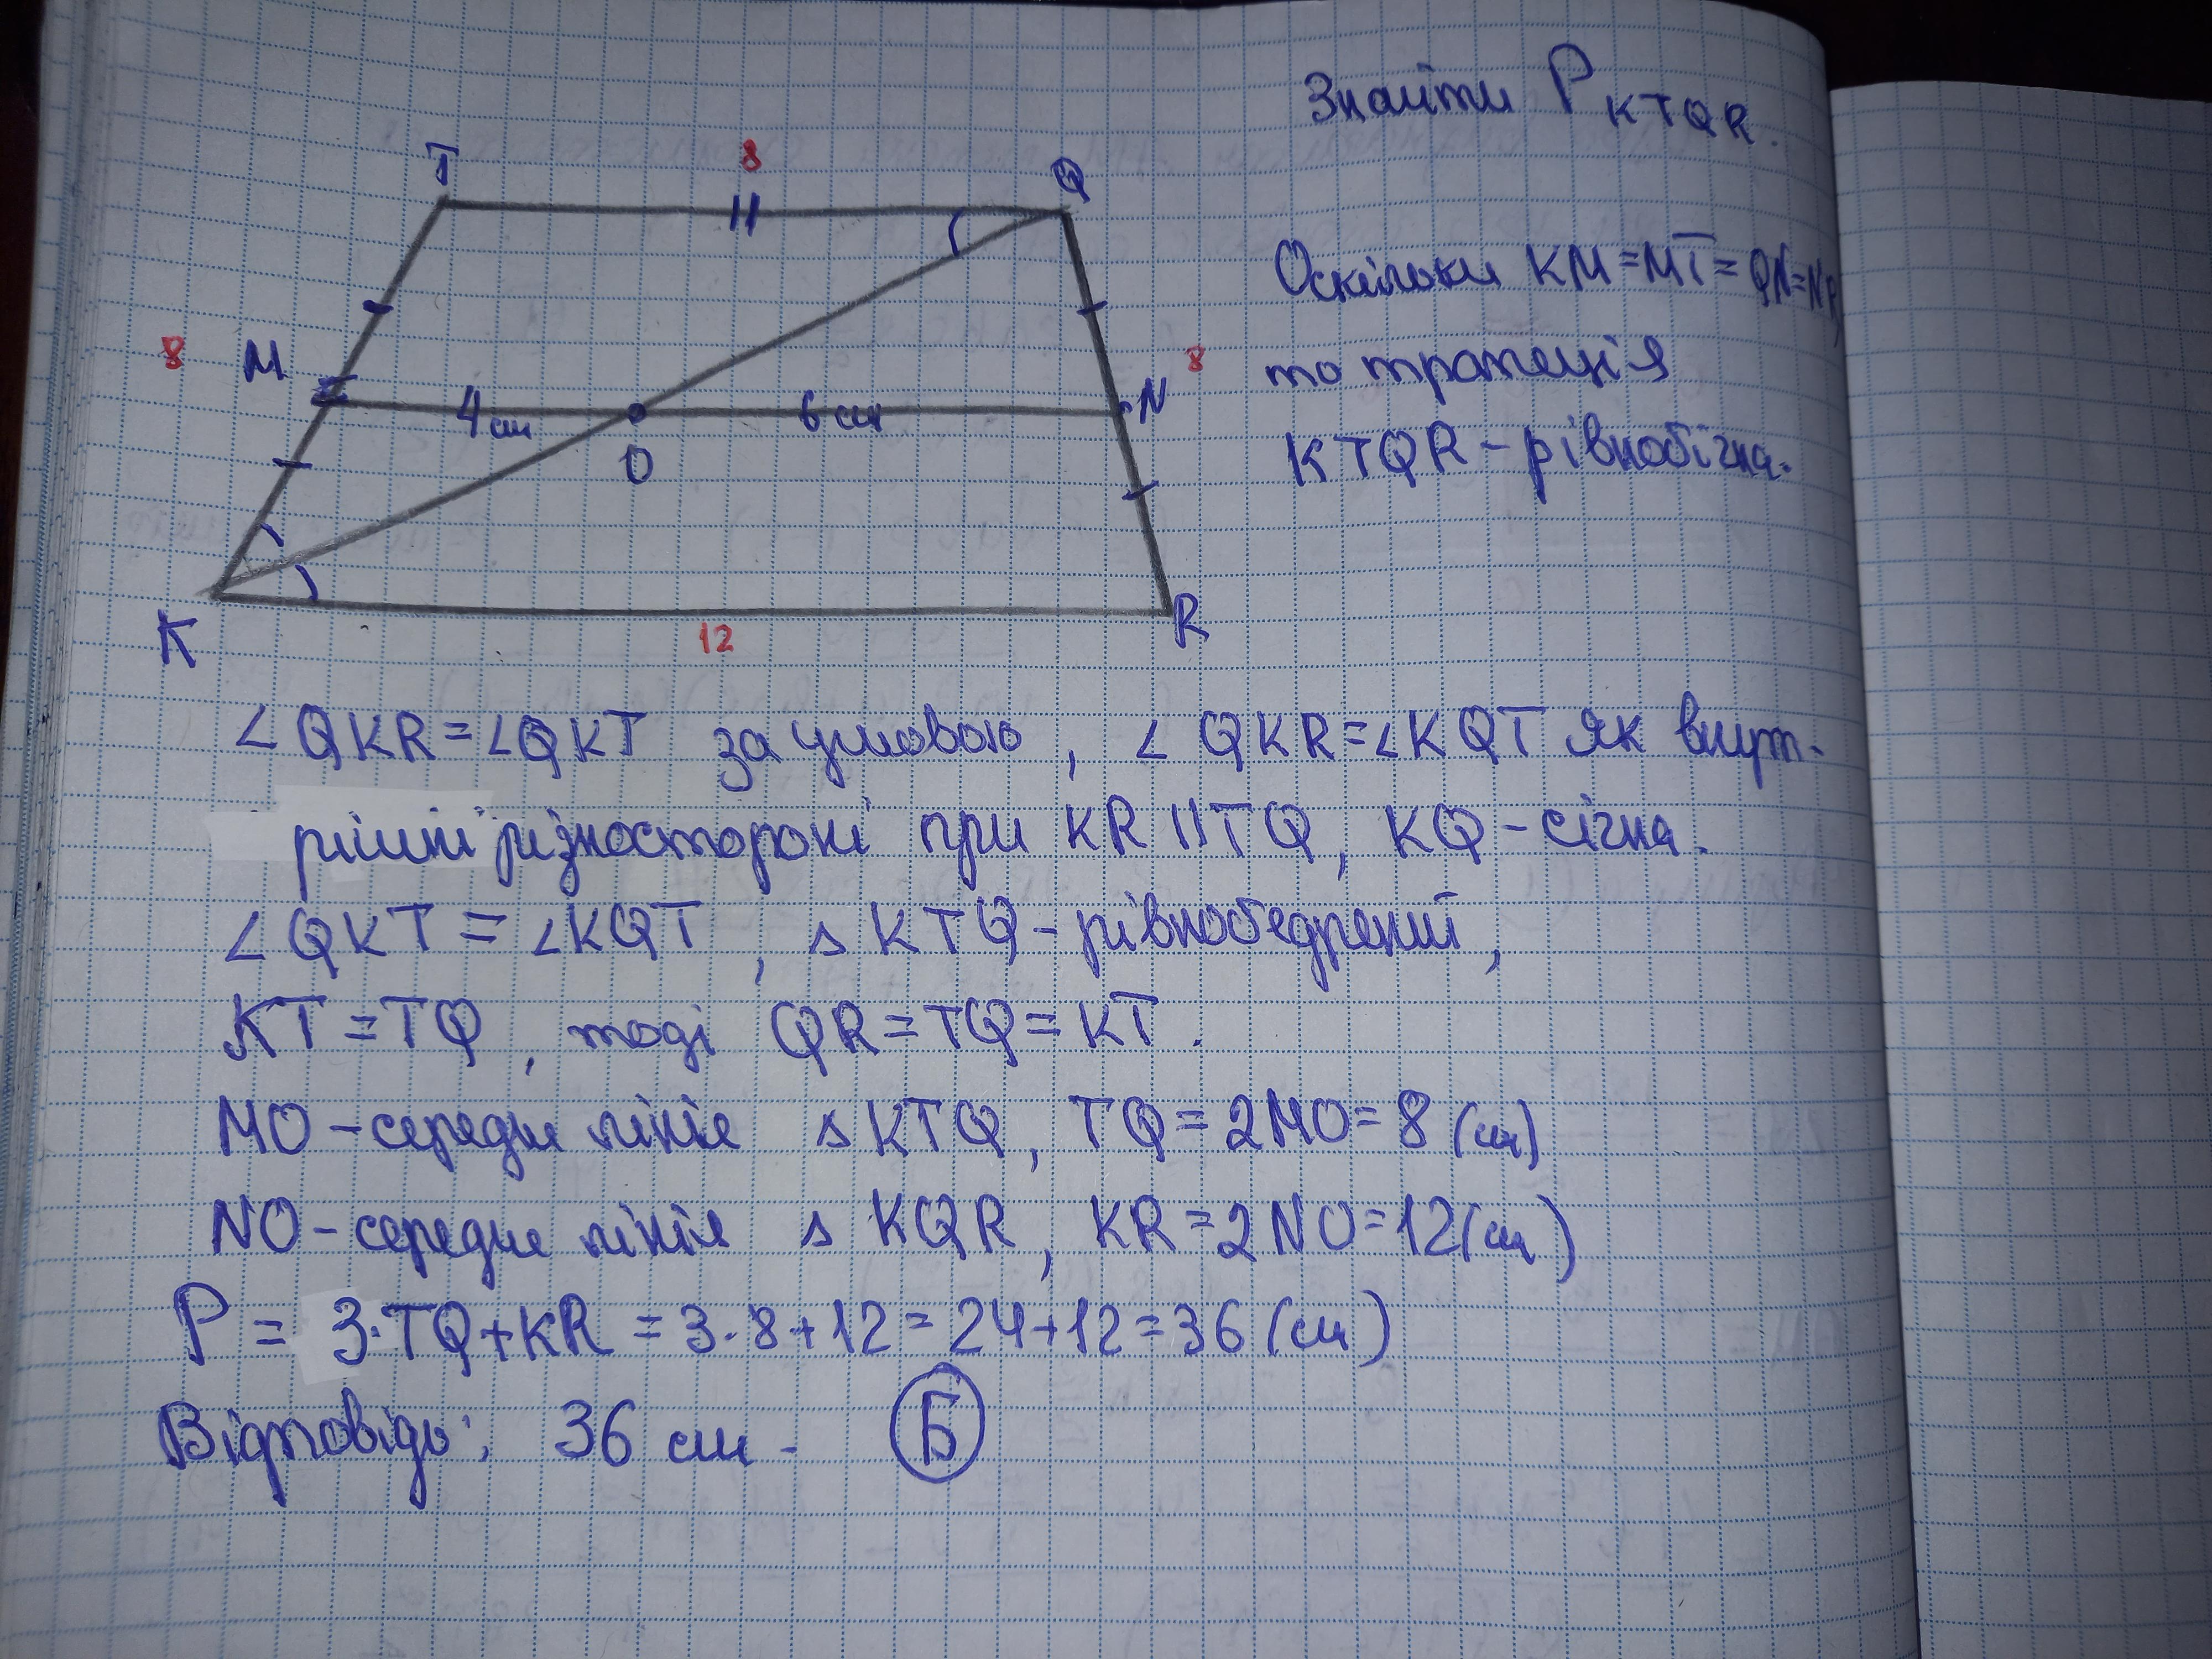 Знайти P KTQR.
T 8 Q
Оскільки KM=MT=QN=NR,
8 M 4 см O 6 см N 8
то трапеція
KTQR - рівнобічна.
K 12 R
∠QKR=∠QKT за умовою, ∠QKR=∠KQT як внут-
рішні різносторонні при KR||TQ, KQ - січна.
∠QKT=∠KQT, △KTQ - рівнобедрений,
KT=TQ, тоді QR=TQ=KT.
MO - середня лінія △KTQ, TQ=2MO=8(см)
NO - середня лінія △KQR, KR=2NO=12(см)
P = 3·TQ+KR = 3·8+12=24+12=36(см)
Відповідь: 36 см - Б